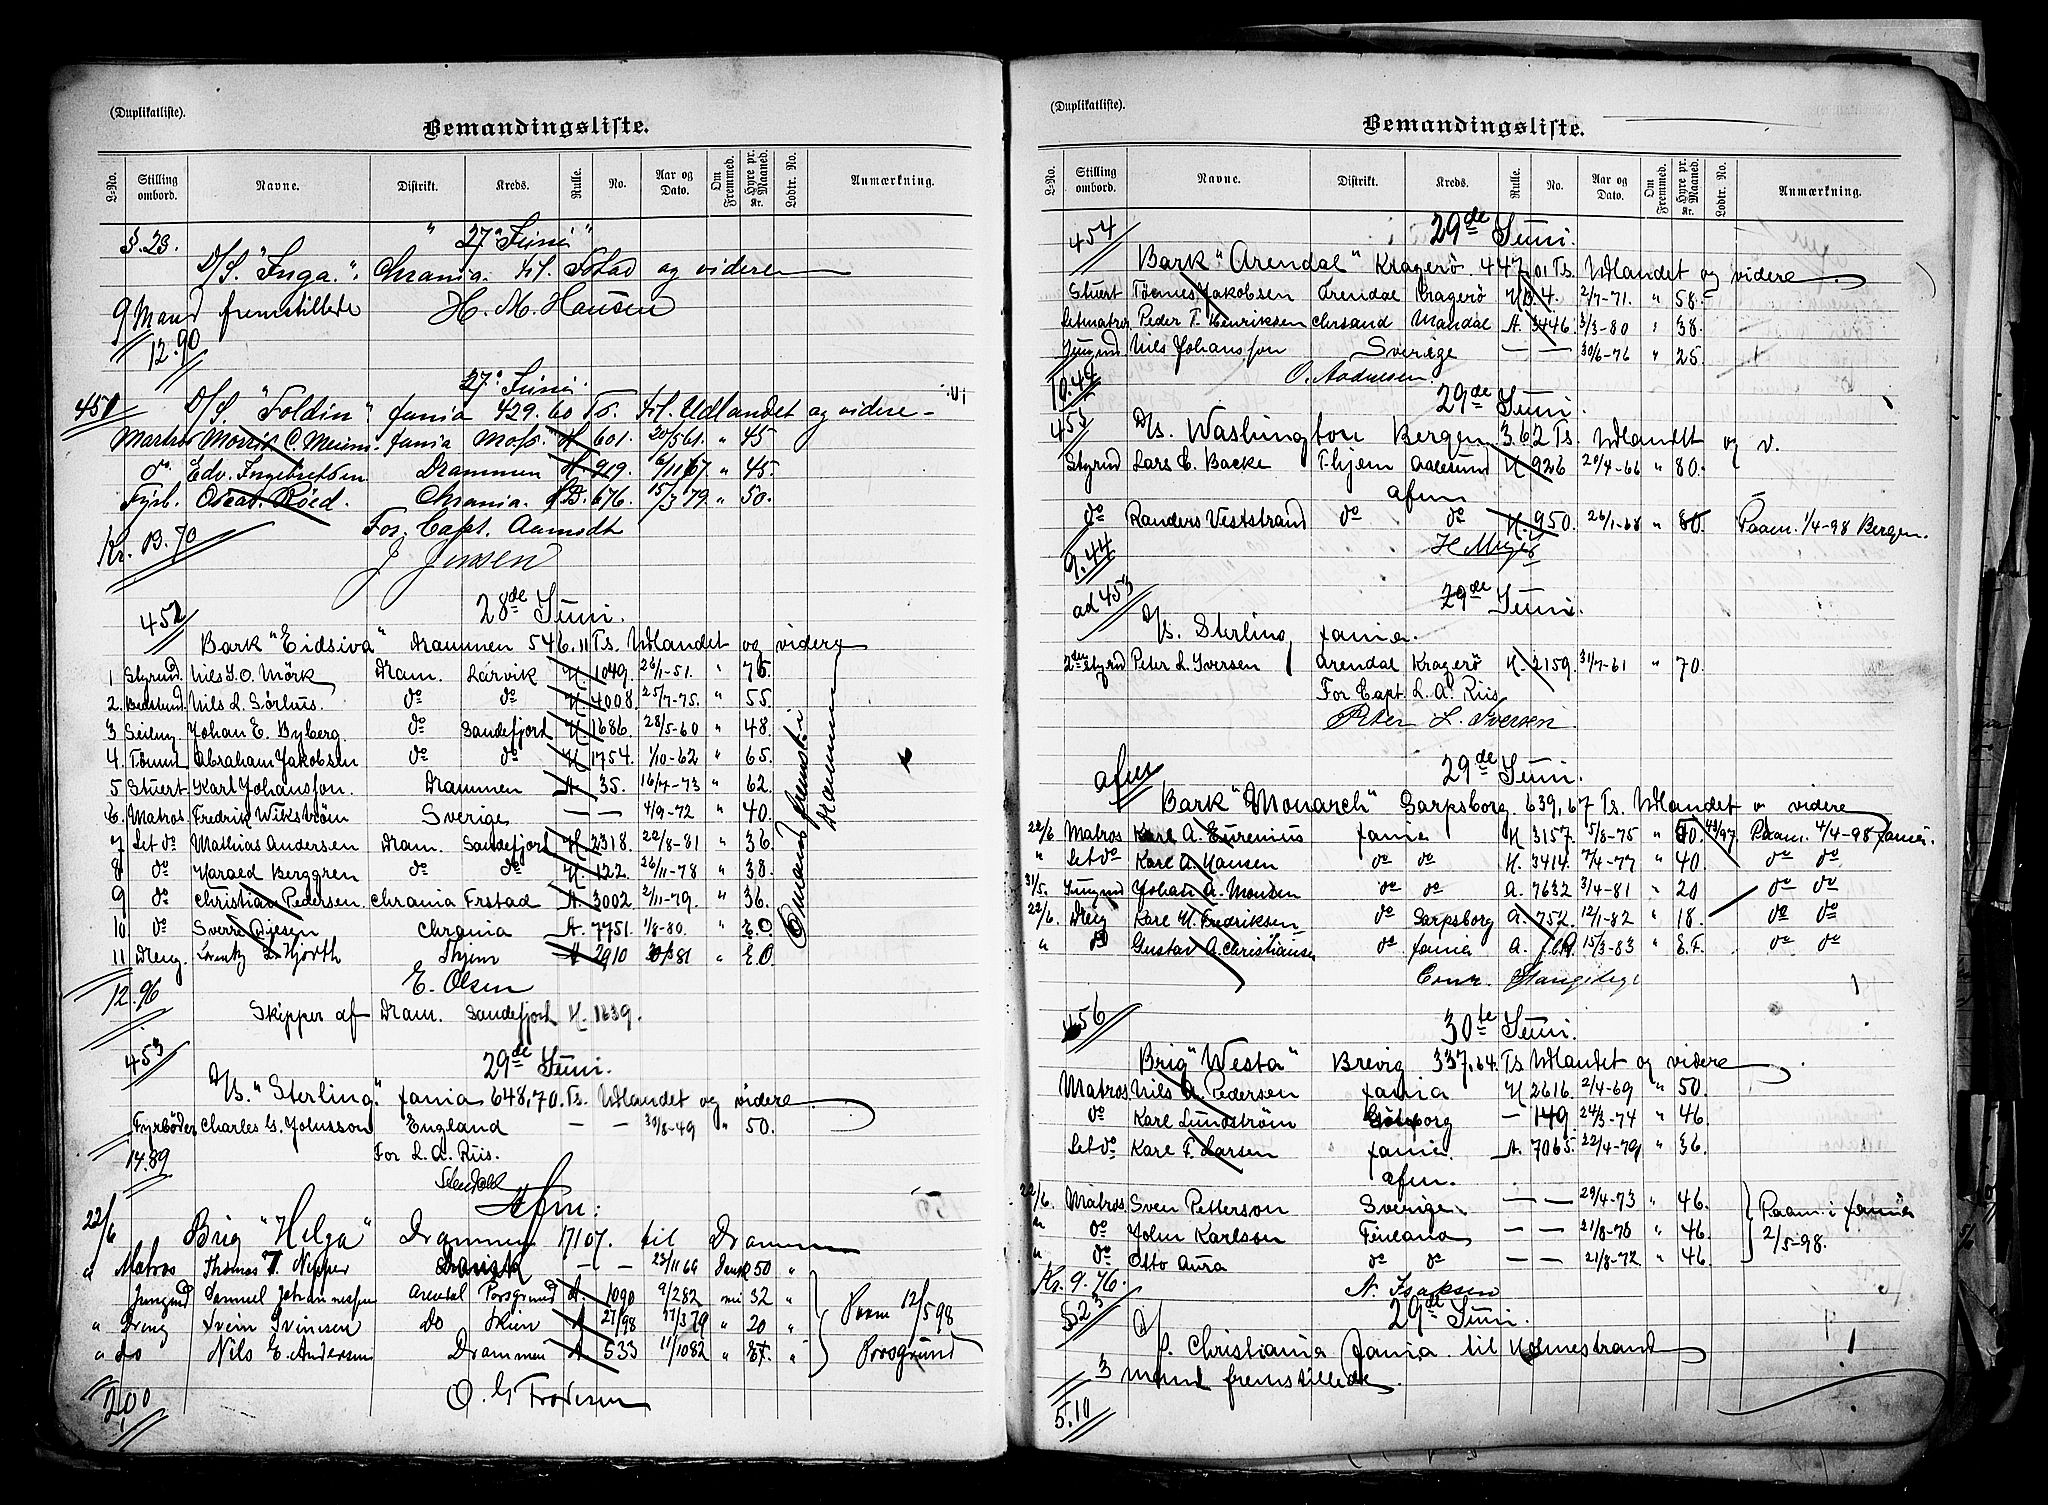 (Duplikatliste).
Bemandingsliste.
L-No. Stilling ombord. Navne. Distrikt. Kreds. Rulle. No. Aar og Dato. Om Fremmed. Hyre pr. Maaned. Kr. Lodtr. No. Anmærkning.
§. 23. " 27 Juni "
D/S. "Inga." Chrania. til Sstad og videre
9 Mand fremstillede H. M. Hansen
12.90
27. Juni.
451 D/S. "Foldin" fania 429.60 Ts. til Udlandet og videre
Martros Morris C. fania Moss. H 601. 20/5 61. " 45
do. Edv. Ingebretsen Drammen H. 919. 6/11 67 " 45.
Fyrb. Oscar Röed. Chrania. B. 676. 15/7 79. " 50.
For Capt. Aamodt
Kr. 13.70
J Jensen
452 28de Juni.
Bark "Eidsiva" Drammen 546.11 Ts. Udlandet og videre
1 Styrmd. Nils J. O. Mörk Dram. Larvik H. 1049. 26/1-51. " 75.
2. Bedstmd Nils L. Sørhus. do do H 4008. 25/7-75. " 55.
3 Seilmg Johan E. Byberg. do Sandefjort H 1686. 28/5-60 " 48.
4. Tømmd Abraham Jakobsen do do H 1754. 1/10-62 " 65.
5 Stuert Karl Johansson. Drammen A 35. 16/7-73 " 62.
6. Matros Fredrik Wikström Sverige — — 4/9-72 " 40.
7 Let do Mathias Andersen Dram. Sandefjort H. 2318. 22/8-81 " 36.
8 do Harald Berggren do do H. 122. 26/11-78 " 38.
9 do Christian Pedersen. Chrania Frstad A. 3002. 2/11-79. " 36.
10 do Sverre Diesen Chrania A. 7751. 1/8-80. " E.O.
11 Dreng. Lorentz L. Hjorth Thjem H 2910 81 " E.O.
6 mand fremst. i Drammen
E. Olsen
12.96
Skipper af Dram. Sandefjort H. 1639.
453 29de Juni.
D/S. "Sterling." fania 648,70. Ts. Udlandet og videre
Fyrböder Charles G. Johnsson England — — 30/8-49 " 50.
14.89 For L. A. Riis.
Afm:
22/6 Brig "Helga" Drammen 17107. til Drammen
" Matros Thomas T. Nipper Dansk — — 23/11 66 Dansk 50 "
Jungmd Samuel Johannessen Arendal Porsgrund A. 1090 9/2 82 nei 32 "
" Dreng Svein Svinesen Do Skien A 27/98 17/3 79 " 20 "
" do Nils E. Andersen Drammen A 533 11/10 82 " EF. "
Paam 12/5 98 Porsgrund
2,00 O. G. Frodesen
(Duplikatliste).
Bemandingsliste.
L-No. Stilling ombord. Navne. Distrikt. Kreds. Rulle. No. Aar og Dato. Om Fremmed. Hyre pr. Maaned. Kr. Lodtr. No. Anmærkning.
454 29de Juni.
Bark "Arendal" Kragerö. 447,01 Ts. Udlandet og videre
Stuert Tönnes Jakobsen Arendal Kragerö 4. 2/7-71. " 58.
Letmatros Peder T. Henriksen Chrsand Mandal A. 3446 3/3-80 " 38.
Jungmd Nils Johansson Sverige — — 30/6-76 " 25.
10.44 O. Aadnesen.
29de Juni.
455 D/s. Washington Bergen 362 Ts. Udlandet og v.
Styrmd Lars C. Backe Thjem Aalesund H 926 20/4-66 " 80.
afm
do Randers Veststrand do do H. 950. 26/1-68 " 80. Paam. 1/4-98 Bergen.
9.44 H. Meyer
ad 453 29de Juni.
D/S. Sterling fania.
2den Styrmd Peter L. Iversen Arendal Kragerö H. 2159. 31/7-61 " 70.
For Capt. L. A. Riis
Peter L. Iversen.
afm 29de Juni.
Bark "Monarch" Sarpsborg. 639,67 Ts. Udlandet og videre
22/6 Matros Karl A. Eurenius fania H 3157. 5/8-75 " 50. 49/97. Paam. 4/4-98 fania.
" Let do Karl A. Hansen do do H. 3414. 7/4-77 " 40 do do
31/5. Jungmd Johan A. Monsen do do A. 7632 3/4-81 " 20 do do
22/6. Dreng Karl H. Fredriksen do Sarpsborg A. 752. 12/1-82 " 18. do do
" do Gustav A. Christiansen do fania A. 15/3-83 " E.F. do do
456 30te Juni.
Brig "Westa" Brevig 337.64. Ts Udlandet og videre
Matros. Nils A. Pedersen fania H 2616. 2/4-69 " 50.
do Karl Lundström Göteborg — 149. 24/3-74 " 46.
Let do Karl F. Larsen fania. A. 7065. 22/4-79 " 36.
afm.
22/6. Matros. Sven Petterson Sverige. — — 29/4-73 " 46.
" do John Karlsson Finland — — 21/8-76 " 46.
" do Otto Aura do do — — 21/8-72 " 46.
Paam. i fania 2/5-98.
Kr. 9.76. A. Isaksen
§23 29de Juni.
D/S. Christiania fania til Holmestrand
3 mand fremstillede.
5.10